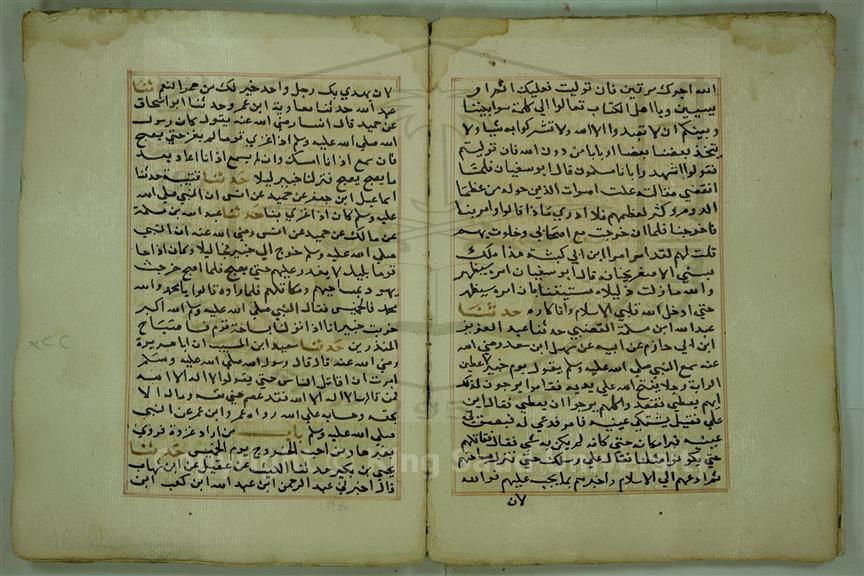 الله اجرك مرتين فان توليت فعليك اثم
يسيين ويا اهل الكتاب تعالوا الي كلمة سوا بيننا
وبينكم ان لا نعبد الا الله ولا نشرك به شيا ولا
يتخذ بعضنا بعضا اربابا من دون الله فان توليتم
فقولوا اشهدوا بانا مسلمون قال ابو سفيان فلما
انقضي مقالته علت اصوات الذين حوله من عظما
الروم وكثر لغطهم فلا ادري ماذا قالوا وامر بنا
فاخرجنا فلما ان خرجت مع اصحابي وخلوت بهم
قلت لهم لقد امر امر ابن ابي كبشة هذا ملك
بني الاصفر يخافه قال ابو سفيان
والله ما زلت ذليلا مستيقنا بان امره سيظهر
حتي ادخل الله قلبي الاسلام وانا كاره حدثنا
عبد الله ابن مسلمة القعنبي حدثنا عبد العزيز
ابن ابي حازم عن ابيه عن سهل ابن سعد رضي الله
عنه سمع النبي صلي الله عليه وسلم يقول يوم خيبر لاعطين
الراية رجلا يفتح الله علي يديه فقاموا يرجون لذلك
ايهم يعطي فغدوا وكلهم يرجوا ان يعطي فقال اين
علي فقيل يشتكي عينيه فامر فدعي له فبصق في
عينيه فبرا مكانه حتي كانه لم يكن به شي فقال نقاتلهم
حتي يكونوا مثلنا فقال علي رسلك حتي تنزل بساحتهم
ثم ادعهم الي الاسلام واخبرهم بما يجب عليهم فو الله
لان
لان يهدي بك رجل واحد خير لك من حمر النعم ثنا
عبد الله حدثنا معاوية ابن عمرو حدثنا ابو اسحاق
عن حميد قال انسا رضي الله عنه يقول كان رسول
الله صلي الله عليه وسلم اذا غزي قوما لم يغز حتي يصبح
فان سمع اذانا امسك وان لم يسمع اذانا اغار بعد
ما يصبح فنزلنا خيبر ليلا حدثنا قتيبة حدثنا
اسماعيل ابن جعفر عن حميد عن انس ان النبي صلي الله
عليه وسلم كان اذا غزي بنا حدثنا عبد الله بن مسلمة
عن مالك عن حميد عن انس رضي الله عنه ان النبي
صلي الله عليه وسلم خرج الي خيبر فجا ليلا وكان اذا جا
قوما بليل لا يغير عليهم حتي يصبح فلما اصبح خرجت
يهود بمساحيهم ومكاتلهم فلما راوه قالوا محمد والله
محمد والخميس فقال النبي صلي الله عليه وسلم الله اكبر
خربت خيبر انا اذا نزلنا بساحة قوم فسا صباح
المنذرين حدثنا سعيد ابن المسيب ان ابا هريرة
رضي الله عنه قال قال رسول الله صلي الله عليه وسلم
امرت ان اقاتل الناس حتي يقولوا لا اله الا الله
فمن قال لا اله الا الله فقد عصم مني نفسه وماله الا
بحقه وحسابه علي الله رواه عمر وابن عمر عن النبي
صلي الله عليه وسلم باب من اراد غزوة فوري
بغيرها ومن احب الخروج يوم الخميس حدثنا
يحيي بن بكير حدثنا الليث عن عقيل عن ابن شهاب
قال اخبرني عبد الرحمن ابن عبد الله ابن كعب ابن